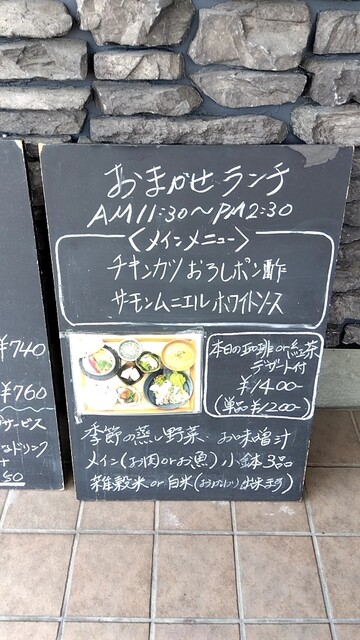 おまかせランチ
AM11:30〜PM2:30
〈メインメニュー〉
チキンカツ おろしポン酢
サーモンムニエル ホワイトソース
本日の珈琲or紅茶
デザート付
¥1400-
(単品 ¥1200-)
季節の蒸し野菜、お味噌汁
メイン(お肉orお魚) 小鉢3品
雑穀米 or 白米(おかわり出来ます)
¥740
¥760
サービス
ドリンク
+
50